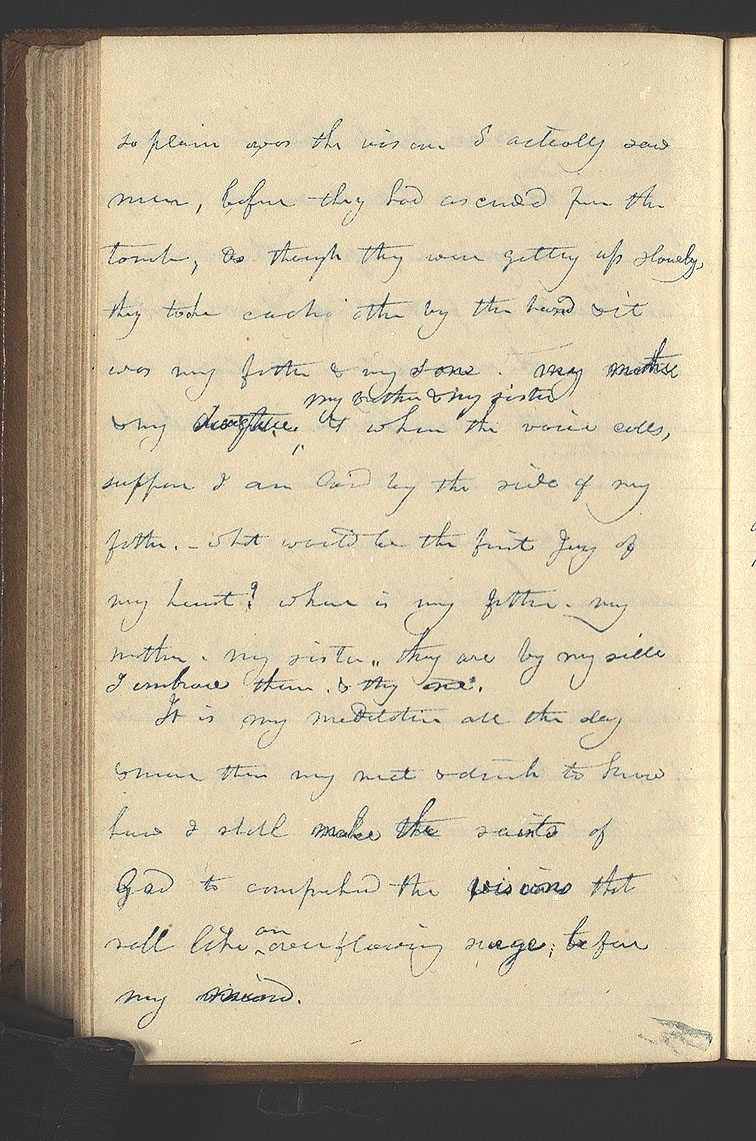 so plain was the vision I actually saw
men, before they had ascended from the
tomb, as though they were getting up slowly,
they took each other by the hand & it
was my father & my son. my mother
my brother & my sister
& my daughter, & when the voice calls,
suppose I am laid by the side of my
father. - what would be the first joy of
my heart? where is my father - my
mother. my sister,, they are by my side
I embrace them. & they me.
It is my meditation all the day
& more than my meat & drink to know
how I shall make the saints of
God to comprehend the visions that
roll like an overflowing surge, before
my mind.